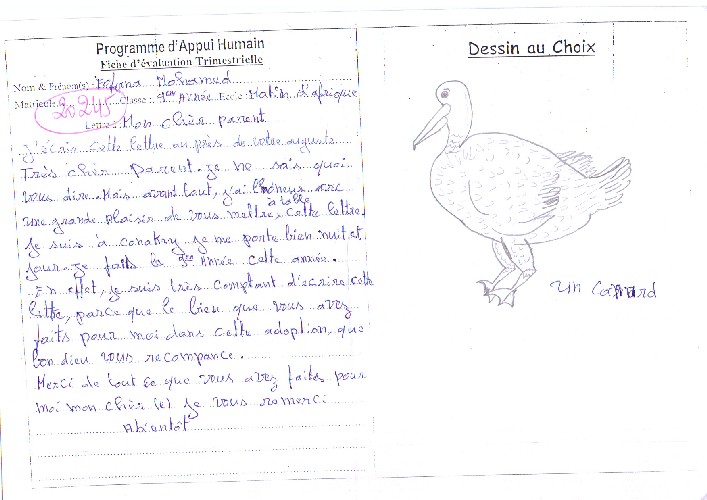 Programme d'Appui Humain
Fiche d'évaluation Trimestrielle
Nom & Prénom(s) : Mohamed
Matricule : 20245 Classe : 9ème Année Ecole : Matin d'afrique
Lettre : Mon cher parent
J'écris cette lettre au près de votre auguste
Très cher parent je ne sais quoi
vous dire. Mais avant tout, j'ai l'honeur avec
une grande plaisir de vous mettre à table cette lettre
je suis à conakry je me porte bien nuit et
jour je faits la 9ème Année cette année.
En effet, je suis très comptant d'ecrire cette
lettre, parce que le bien que vous avez
faits pour moi dans cette adoption, que
bon dieu vous recompance.
Merci de tout ce que vous avez faits pour
moi mon cher (e) je vous romerci
Abientôt
Dessin au Choix
un Canard